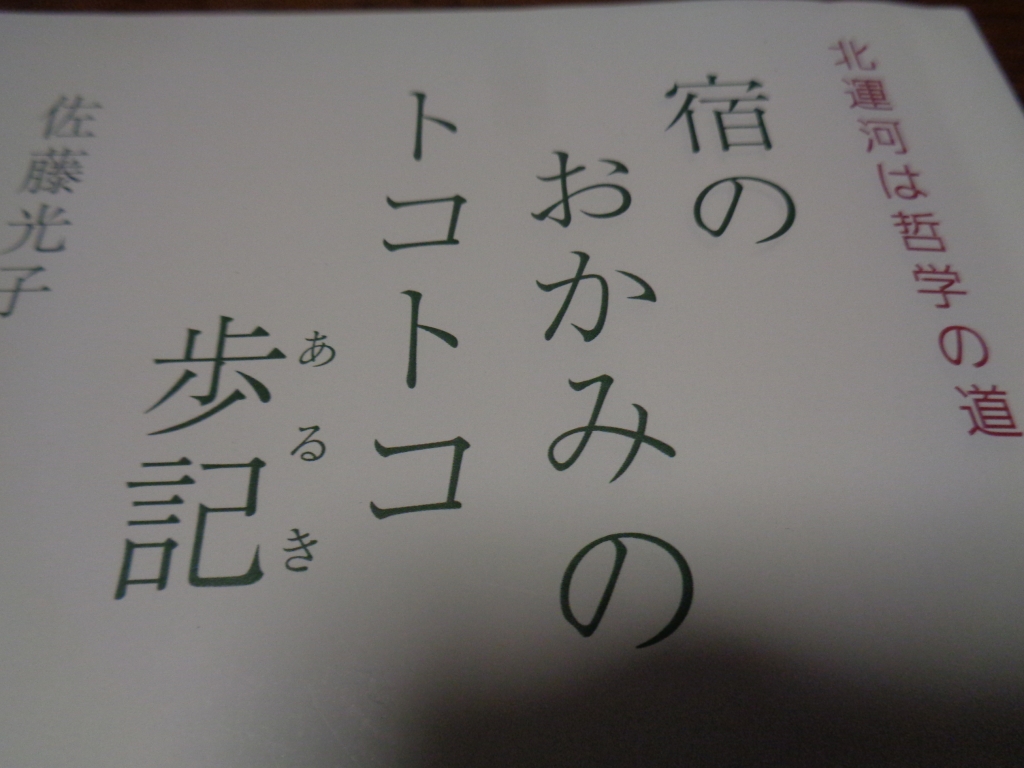 北運河は哲学の道
宿の
おかみの
トコトコ
歩記
あるき
佐藤光子